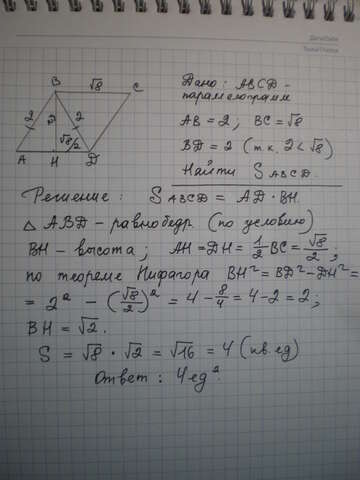 B √8 C
2 2
√2
√8/2
A H D
Дано: ABCD -
параллелограмм
AB = 2; BC = √8
BD = 2 (т.к. 2 < √8)
Найти S ABCD.
Решение: S ABCD = AD · BH.
△ ABD - равнобедр. (по условию)
BH - высота; AH = DH = 1/2 BC = √8/2;
по теореме Пифагора BH² = BD² - DH² =
= 2² - (√8/2)² = 4 - 8/4 = 4 - 2 = 2;
BH = √2.
S = √8 · √2 = √16 = 4 (кв. ед)
Ответ: 4 ед².